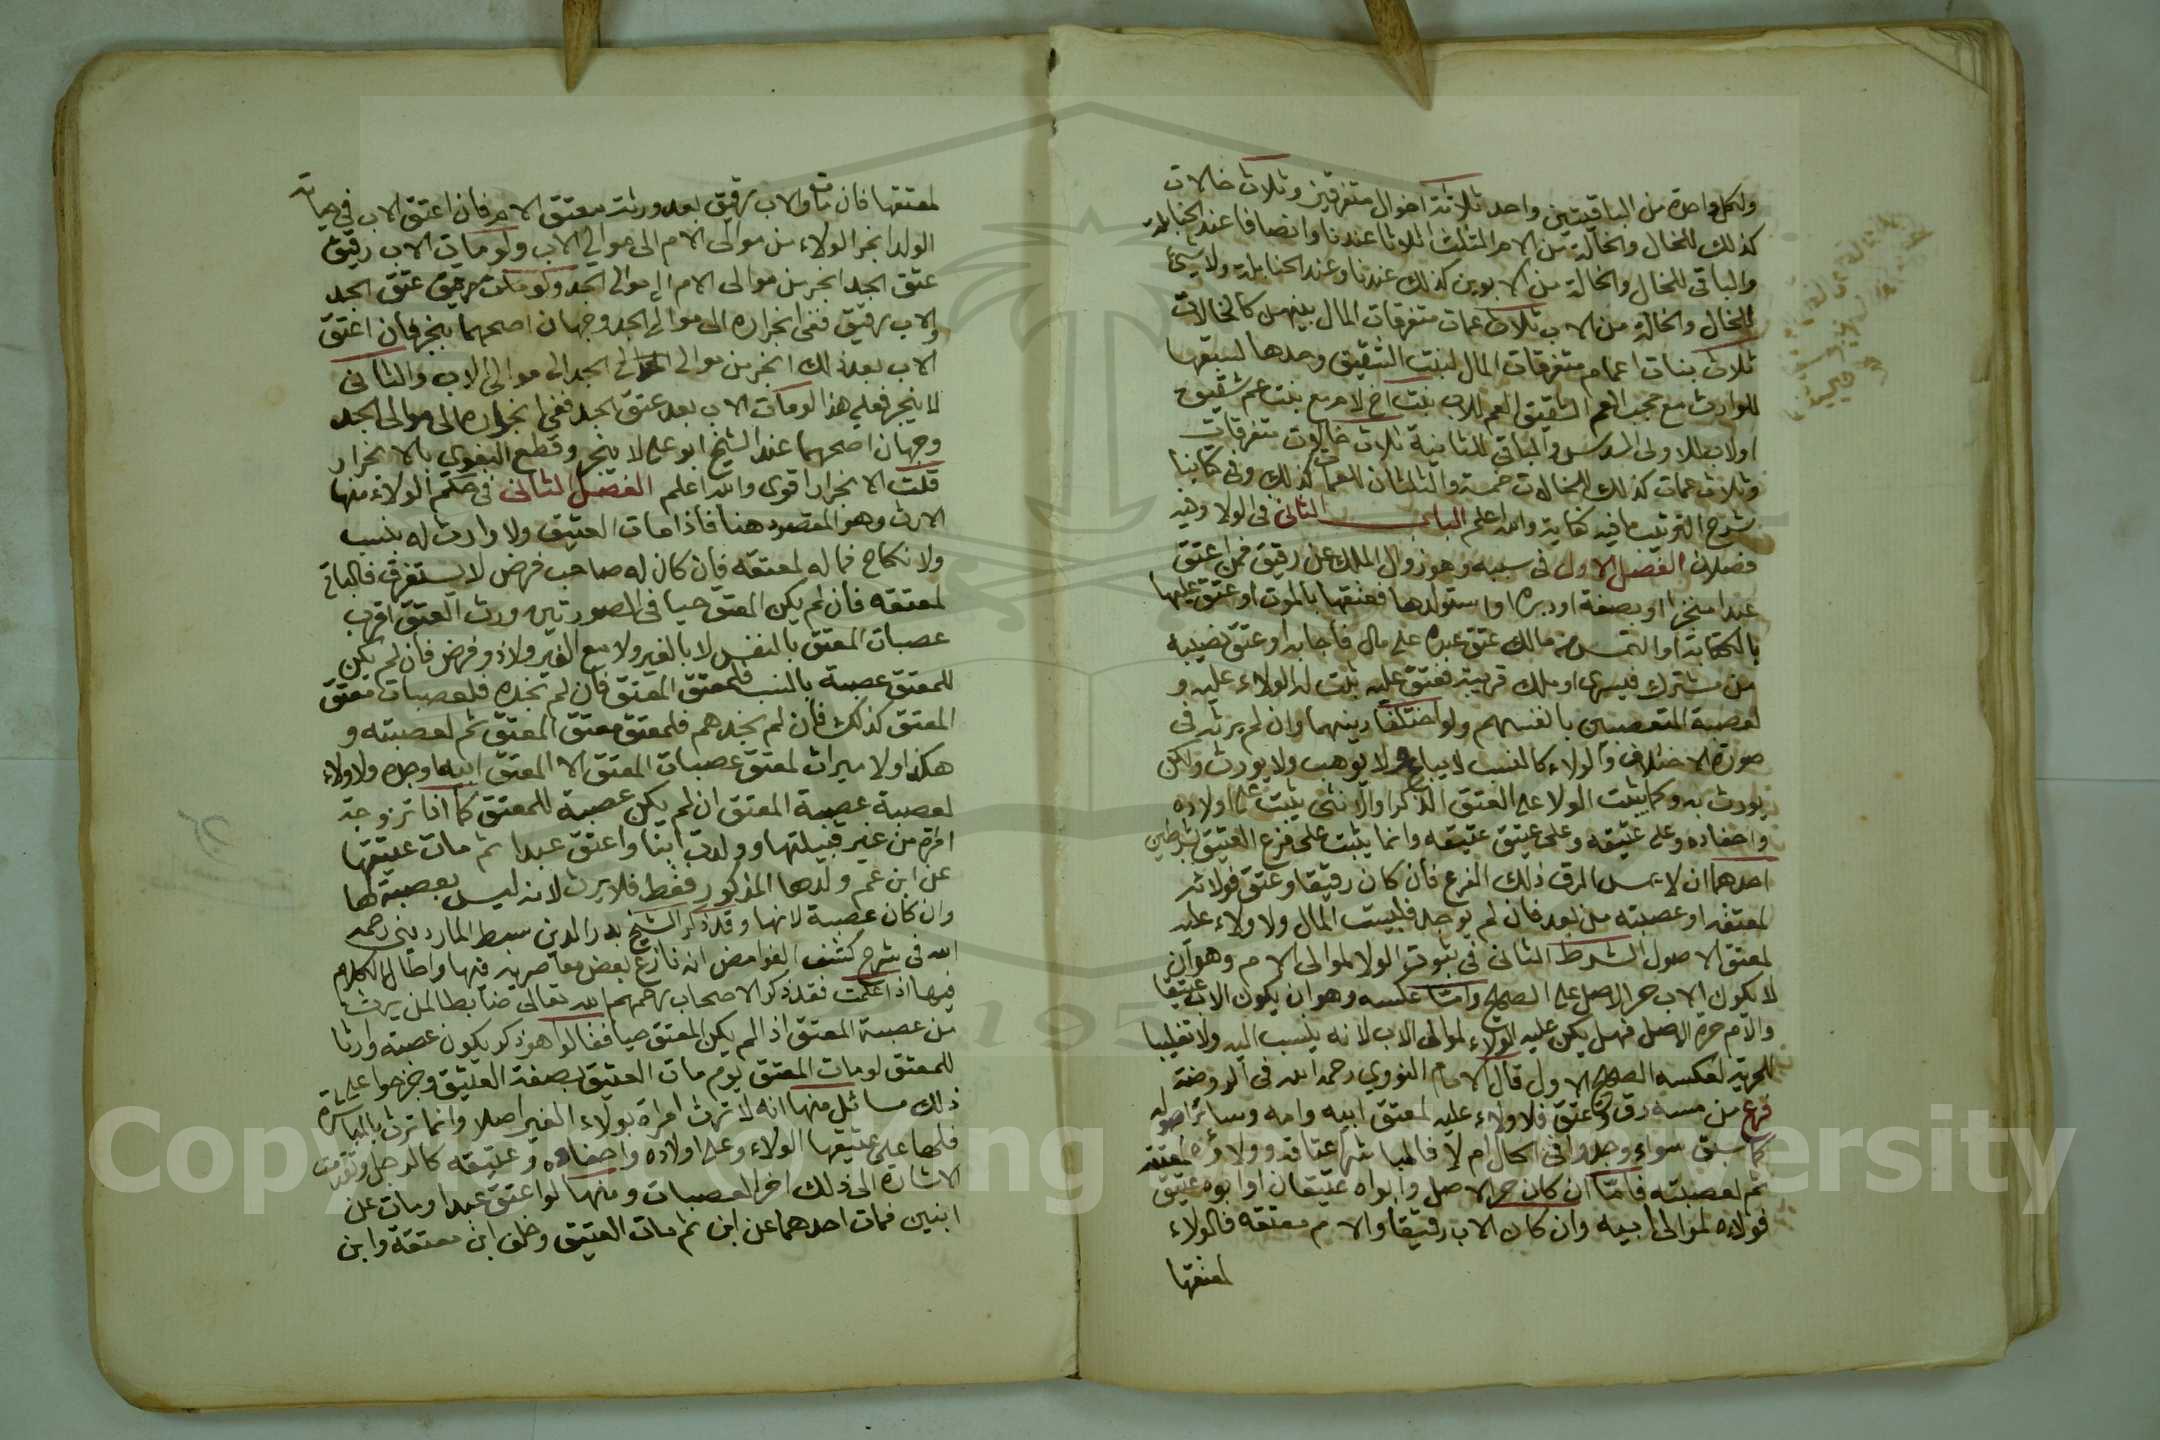 ولكل واحدة من الباقيتين واحد ثلاثة اخوال متفرقين وثلاث خالات
كذلك للخال والخالة من الام الثلث اثلاثا عندنا وانصافا عند الحنابلة
والباقي للخال والخالة من الابوين كذلك عندنا وعند الحنابلة ولا شئ
للخال والخالة من الاب ثلاث عمات متفرقات المال بينهن كالخالات
ثلاث بنات اعمام متفرقات المال لبنت الشقيق وحدها لسبقها
للوارث مع حجب العم الشقيق العم للاب بنت اخ لام مع بنت عم شقيق
اولاب للاولى السدس والباقي للثانية ثلاث خالات متفرقات
وثلاث عمات كذلك للخالات خمسة والثلثان للعمات كذلك وفي كتابنا
شرح الترتيب ما فيه كفاية والله اعلم الباب الثاني في الولا وفيه
فصلان الفصل الاول في سببه وهو زوال الملك عن رقيق فمن اعتق
عبدا منجزا او بصفة او دبره او استولدها فعتقها بالموت او عتق عليها
بالكتابة او التمس من مالك عتق عبده على مال فاجابه او عتق نصيبه
من مشترك فيسرى او ملك قريبه فعتق عليه ثبت له الولاء عليه و
لعصبة المتعصبين بانفسهم ولو اختلفا دينهما وان لم يرثه في
صورة الاختلاف والولاء كالنسب لا يباع ولا يوهب ولا يورث ولكن
يورث به وكما يثبت الولا على العتيق الذكر او الانثى يثبت على اولاده
واحفاده وعلى عتيقه وعلى عتيق عتيقه وانما يثبت على فرع العتيق بشرطين
احدهما ان لا يمس الرق ذلك الفرع فان كان رقيقا وعتق فولائه
لمعتقه او عصبته من بعد فان لم يوجد فلبيت المال ولا ولاء عليه
لمعتق الاصول الشرط الثاني في ثبوت الولا لموالى الام وهو ان
لا يكون الاب حر الاصل على الصحيح وامتا عكسه وهو ان يكون الاب عتيقا
والام حرة الاصل فهل يكن عليه الولاء لموالى الاب لانه ينسب اليه ولا تغليبا
للحرية لعكسه الصحيح الاول قال الامام النووي رحمه الله في الروضة
فرع من مسه رق وعتق فلا ولاء عليه لمعتق ابيه وامه وسائر اصوله
كما سبق سواء وجدوا في الحال ام لا فالمباشر اعتاقه وولاؤه لمعتقه
ثم لعصبته فامتا ان كان حر الاصل وابواه عتيقان او ابوه عتيق
فولاءه لموالى ابيه وان كان الاب رقيقا والام معتقة فالولاء
لمعتقها
لمعتقها فان مات والاب رقيق بعد ورثه معتق الام فان اعتق الاب في حياته
الولد انجر الولاء من موالى الام الى موالي الاب ولو مات الاب رقيق
عتق الجد انجر من موالى الام الى موالى الجد ولو عتق الجد
والاب رقيق ففي انجراره الى موالى الجد وجهان اصحهما ينجر فان اعتق
الاب بعد ذلك انجر من موالى الجد الى موالى الاب والثاني
لا ينجر فعلى هذا لو مات الاب بعد عتق الجد ففي انجراره الى موالى الجد
وجهان اصحهما عند الشيخ ابو علي لا ينجر وقطع البغوي بالانجرار
قلت الانجرار اقوى والله اعلم الفصل الثاني في حكم الولاء منها
الارث وهو المقصود هنا فاذا مات العتيق ولا وارث له بنسب
ولا نكاح فماله لمعتقه فان كان له صاحب فرض لا يستغرق فالباقي
لمعتقه فان لم يكن المعتق حيا في الصورتين ورث العتيق اقرب
عصبات المعتق بالنفس لا بالغير ولا مع الغير ولا ذو فرض فان لم يكن
للمعتق عصبة بالنسب فلمعتق المعتق فان لم نجده فلعصبات معتق
المعتق كذلك فان لم نجدهم فلمعتق معتق المعتق ثم لعصبته و
هكذا ولا ميراث لمعتق عصبات المعتق الا المعتق ابيه او جده ولا ولاء
لعصبة عصبة المعتق ان لم يكن عصبة للمعتق كما اذا تزوجت
امرة من غير قبيلتها وولدت ابنا واعتق عبدا ثم مات عتيقها
عن ابن عم ولدها المذكور فقط فلا يرث لانه ليس بعصبة لها
وان كان عصبة لابنها وقد ذكر الشيخ بدر الدين سبط المارديني رحمه
الله في شرح كشف الغوامض انه نازع بعض معاصريه فيها واطال الكلام
فيها اذا علمت فقد ذكر الاصحاب رحمهم الله تعالى ضابطا لمن يرث
من عصبة المعتق اذا لم يكن المعتق حيا فقالوا هو ذكر يكون عصبة وارثا
للمعتق لو مات المعتق يوم مات العتيق بصفة العتيق وخرجوا على
ذلك مسائل منها انه لا ترث امراة بولاء الغير اصلا وانما ترث بالمباشرة
فلها على عتيقها الولاء وعلى اولاده واحفاده وعتيقه كالرجل وتقدمت
الاشارة الى ذلك اخر العصبات ومنها لو اعتق عبدا ومات عن
ابنين فمات احدهما عن ابن ثم مات العتيق وخلف ابن معتقه وابن
Copyright © King University
195